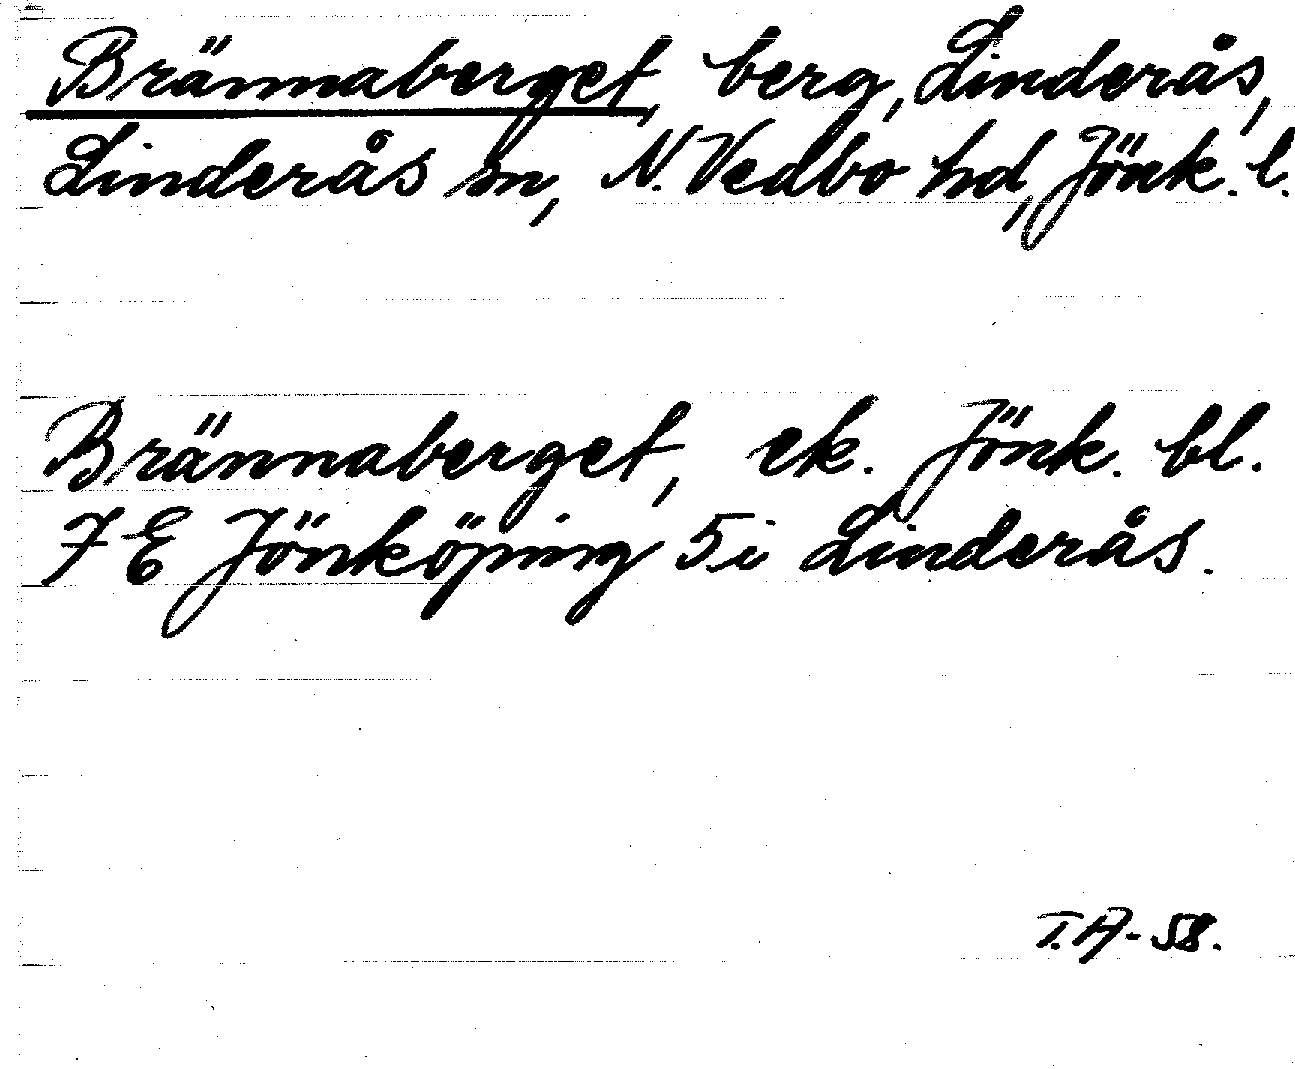 Brännaberget, berg, Linderås,
Linderås sn, N. Vedbo hd, Jönk. l.
Brännaberget, ek. Jönk. bl.
7 E Jönköping 5 i Linderås.
T.A-58.